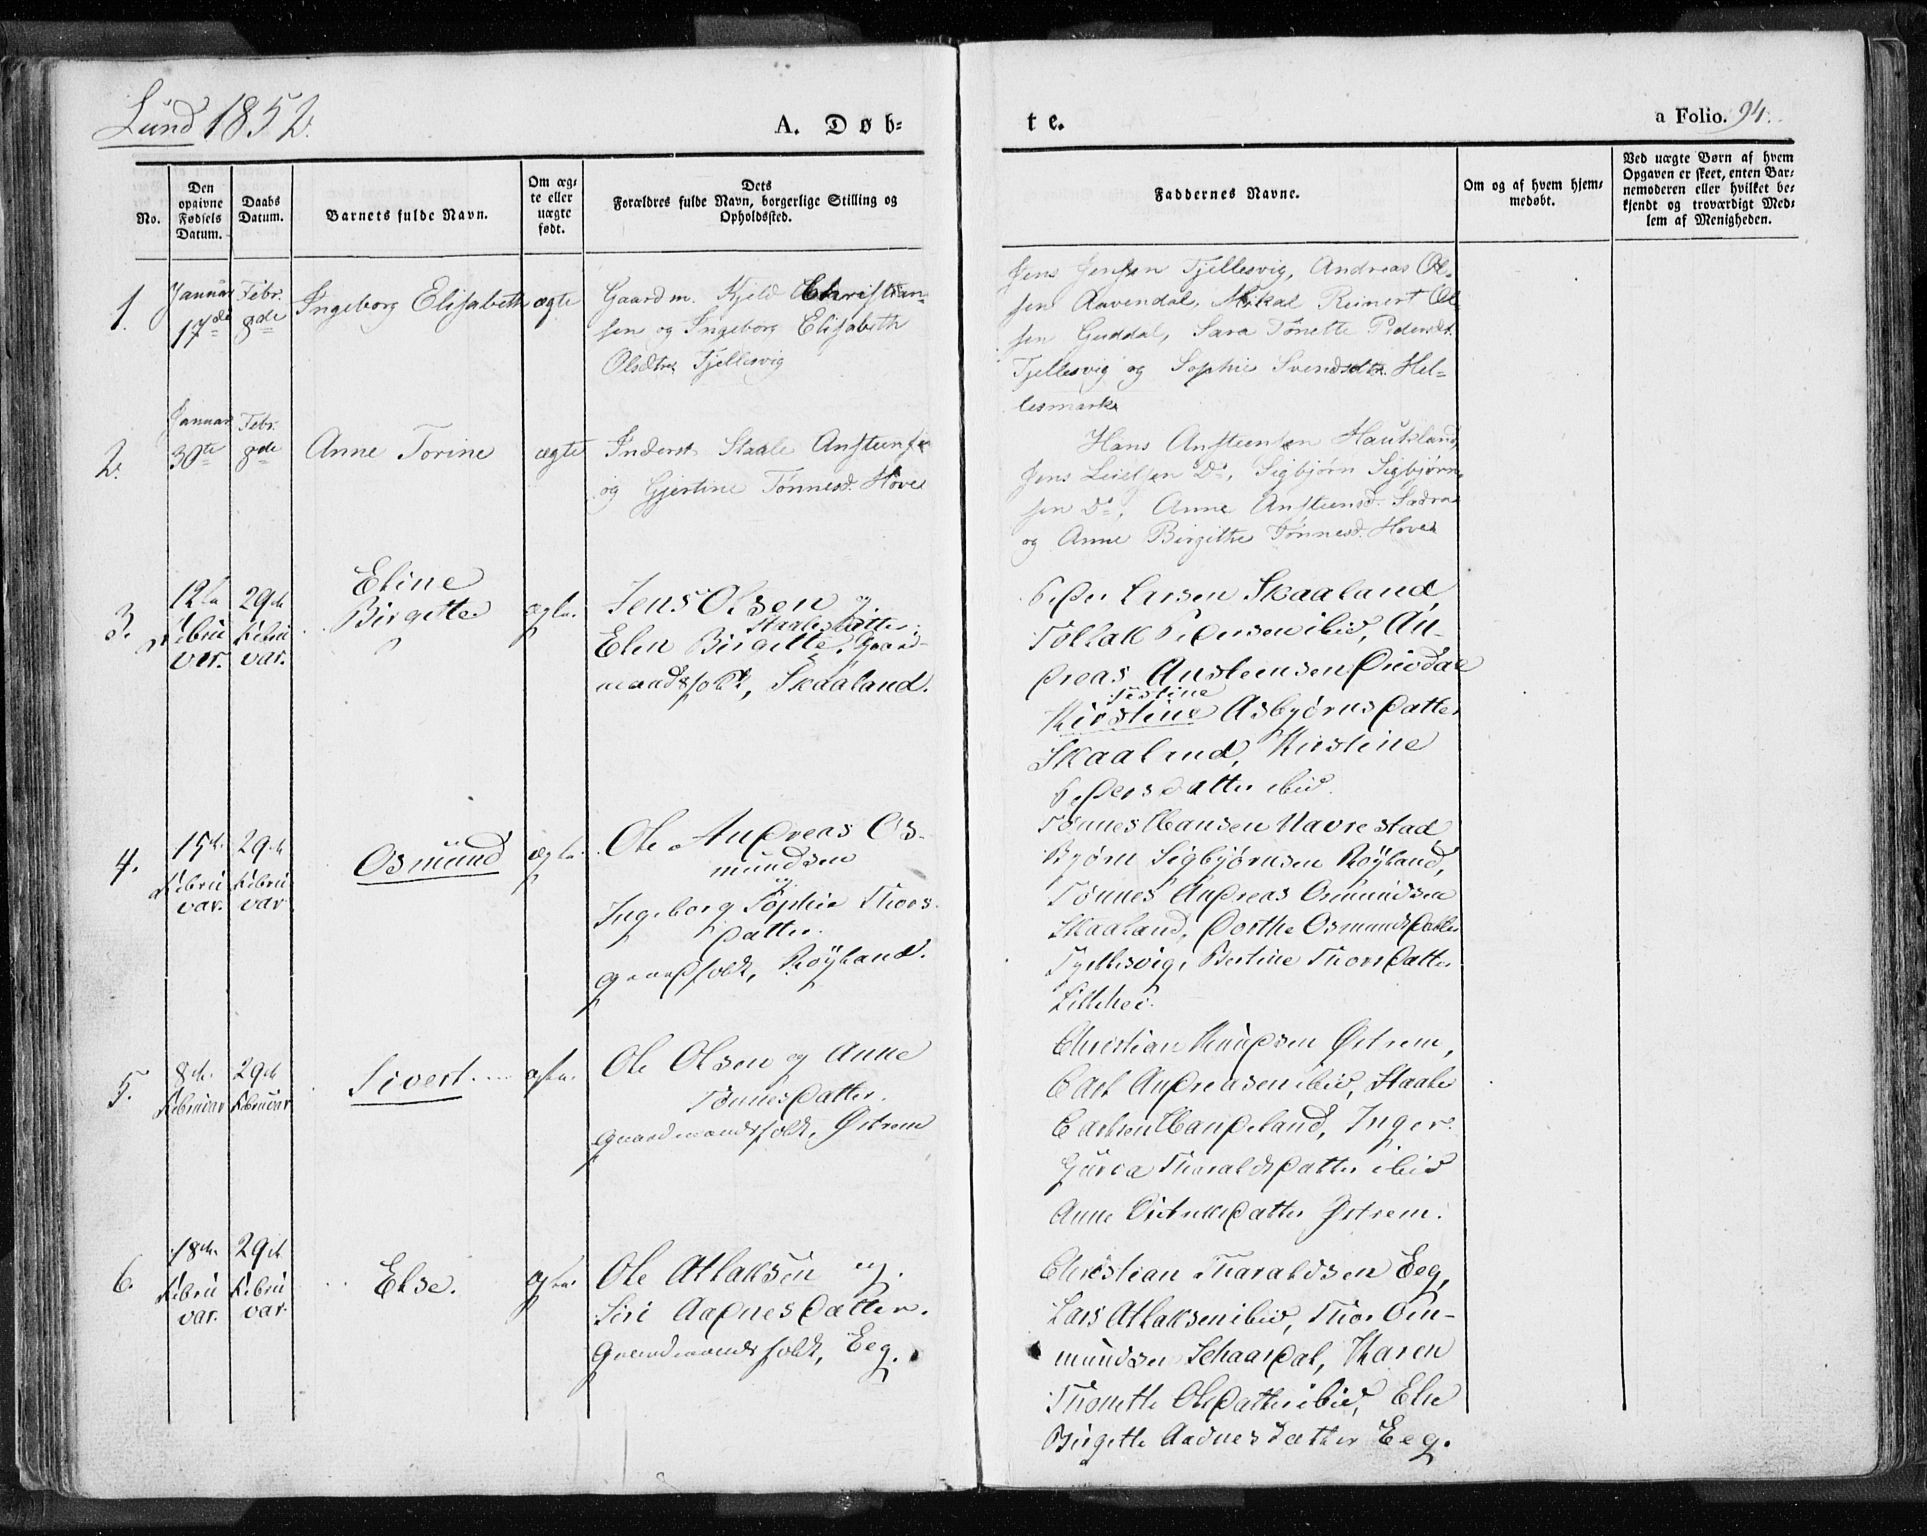 Lund 1852.
A. Døb-
te.
a Folio. 94.
No.
Den
opgivne
Fødsels
Datum.
Daabs
Datum.
Barnets fulde Navn.
Om æg-
te eller
uægte
født.
Dets
Forældres fulde Navn, borgerlige Stilling og
Opholdssted.
Faddernes Navne.
Om og af hvem hjem-
medøbt.
Ved uægte Børn af hvem
Opgaven er skeet, enten Bar-
nemoderen eller hvilket be-
kjendt og troværdigt Med-
lem af Menigheden.
1.
Januar
17de
Febr.
8de
Ingeborg Elisabeth
ægte
Gaardm. Kjeld Christian-
sen og Ingeborg Elisabeth
Olsdtr Tjellesvig
Jens Jensen Tjellesvig, Andreas Ol-
sen Ravendal, Mikal Reinert Ol-
sen Guddal, Sara Tønette Pedersdt.
Tjellesvig og Sophie Svendsdtr Hel-
lesmark
2.
Januar
30te
Febr.
8de
Anne Torine
ægte
Inderst Staale Anstensen
og Gjertine Tønnesd. Hove
Hans Anstensen Haukland,
Jens Leielsen Do, Sigbjørn Sigbjørn-
sen Do, Anne Anstensd.
og Anne Birgithe Tønnesd. Hove
3.
12te
Februar
var.
29de
Febru
var.
Eline
Birgitte
ægte.
Jens Olsen og
Staalesdatter.
Elen Birgitte, Gaard-
mandsfolk, Skaaland.
Peder Larsen Skaaland,
Tollak Pedersen ibid, An-
dreas Ansteensen
Jestine
Kirstine Asbjørnsdatter
Skaaland, Kirstine
Pedersdatter ibid.
4.
15de
Febru
var.
29de
Febru
var
Osmund
ægte.
Ole Andreas Os-
mundsen
og
Ingeborg Sophie Thors-
datter.
gaardfolk, Røyland.
Tønnes Hansen Navrestad
Bjørn Sigbjørnsen Røyland,
Tønnes Andreas Osmundsen
Skaaland, Dorthe Osmundsdatter
Tjellesvig, Bertine Thorsdatter
Lillehei.
5.
8de
Februar
29de
Februar
Sivert
ægte.
Ole Olsen og Anne
Tønnesdatter.
gaardmandsfolk, Østrem
Christian Knudsen Østrem,
Carl Andreasen ibid, Staale
Carlsen Haugeland, Inger
Gurea Tharaldsdatter ibid
Anne Østrem.
6.
18de
Febru
var.
29de
Febru
var.
Else.
ægte.
Ole Atlaksen og
Siri Aadnesdatter.
gaardmandsfolk, Eeg.
Christian Tharaldsen Eeg,
Lars Atlaksen ibid, Thor Om-
mundsen Schaardal, Karen
Thonette Olsdatter ibid, Else
Birgitte Aadnesdatter Eeg.